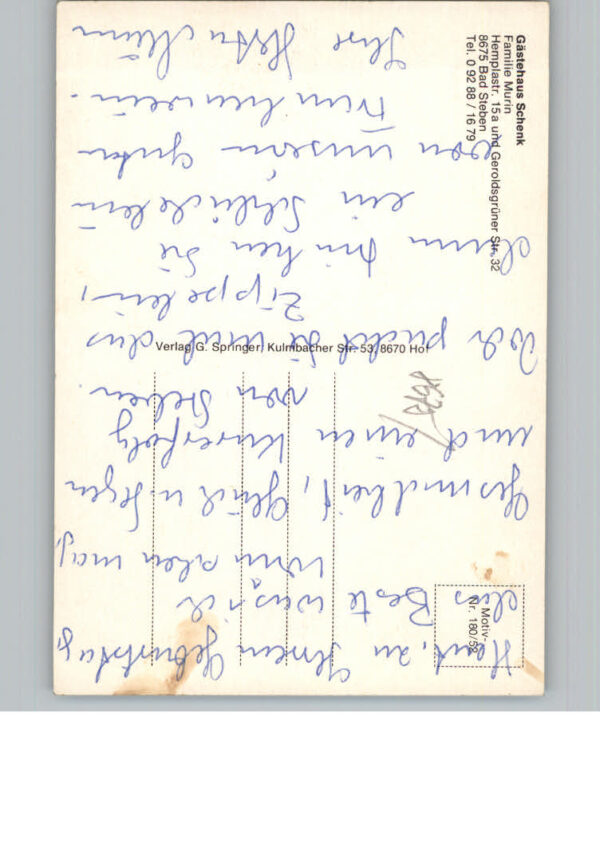 Gästehaus Schenk
Familie Murin
Hemplastr. 15a und Geroldsgrüner Str. 32
8675 Bad Steben
Tel. 0 92 88 / 16 79
Verlag G. Springer, Kulmbacher Str. 53, 8670 Hof
Motiv-
Nr. 180/52
Heut, zu Ihrem Geburtstag,
das Beste was ich
mag,
Gesundheit, Glück u. Segen
und einen Kurerfolg
von Steben.
Doch packt Sie mal das
Zipperlein,
dann trinken Sie
ein Schlückelein
von unserm guten
Frankenwein.
Ihre Herta Murin